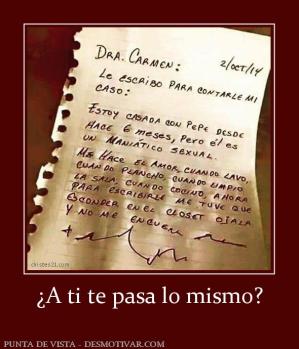 DRA. CARMEN:
2/OCT/14
LE ESCRIBO PARA CONTARLE MI
CASO:
ESTOY CASADA CON PEPE DESDE
HACE 6 MESES, PERO ÉL ES
UN MANIÁTICO SEXUAL.
ME HACE EL AMOR CUANDO LAVO,
CUANDO PLANCHO, CUANDO LIMPIO
LA SALA, CUANDO COCINO, AHORA
PARA ESCRIBIRLE ME TUVE QUE
ESCONDER EN EL CLOSET OJALA
Y NO ME ENCUEN
chistes21.com
¿A ti te pasa lo mismo?
PUNTA DE VISTA - DESMOTIVAR.COM